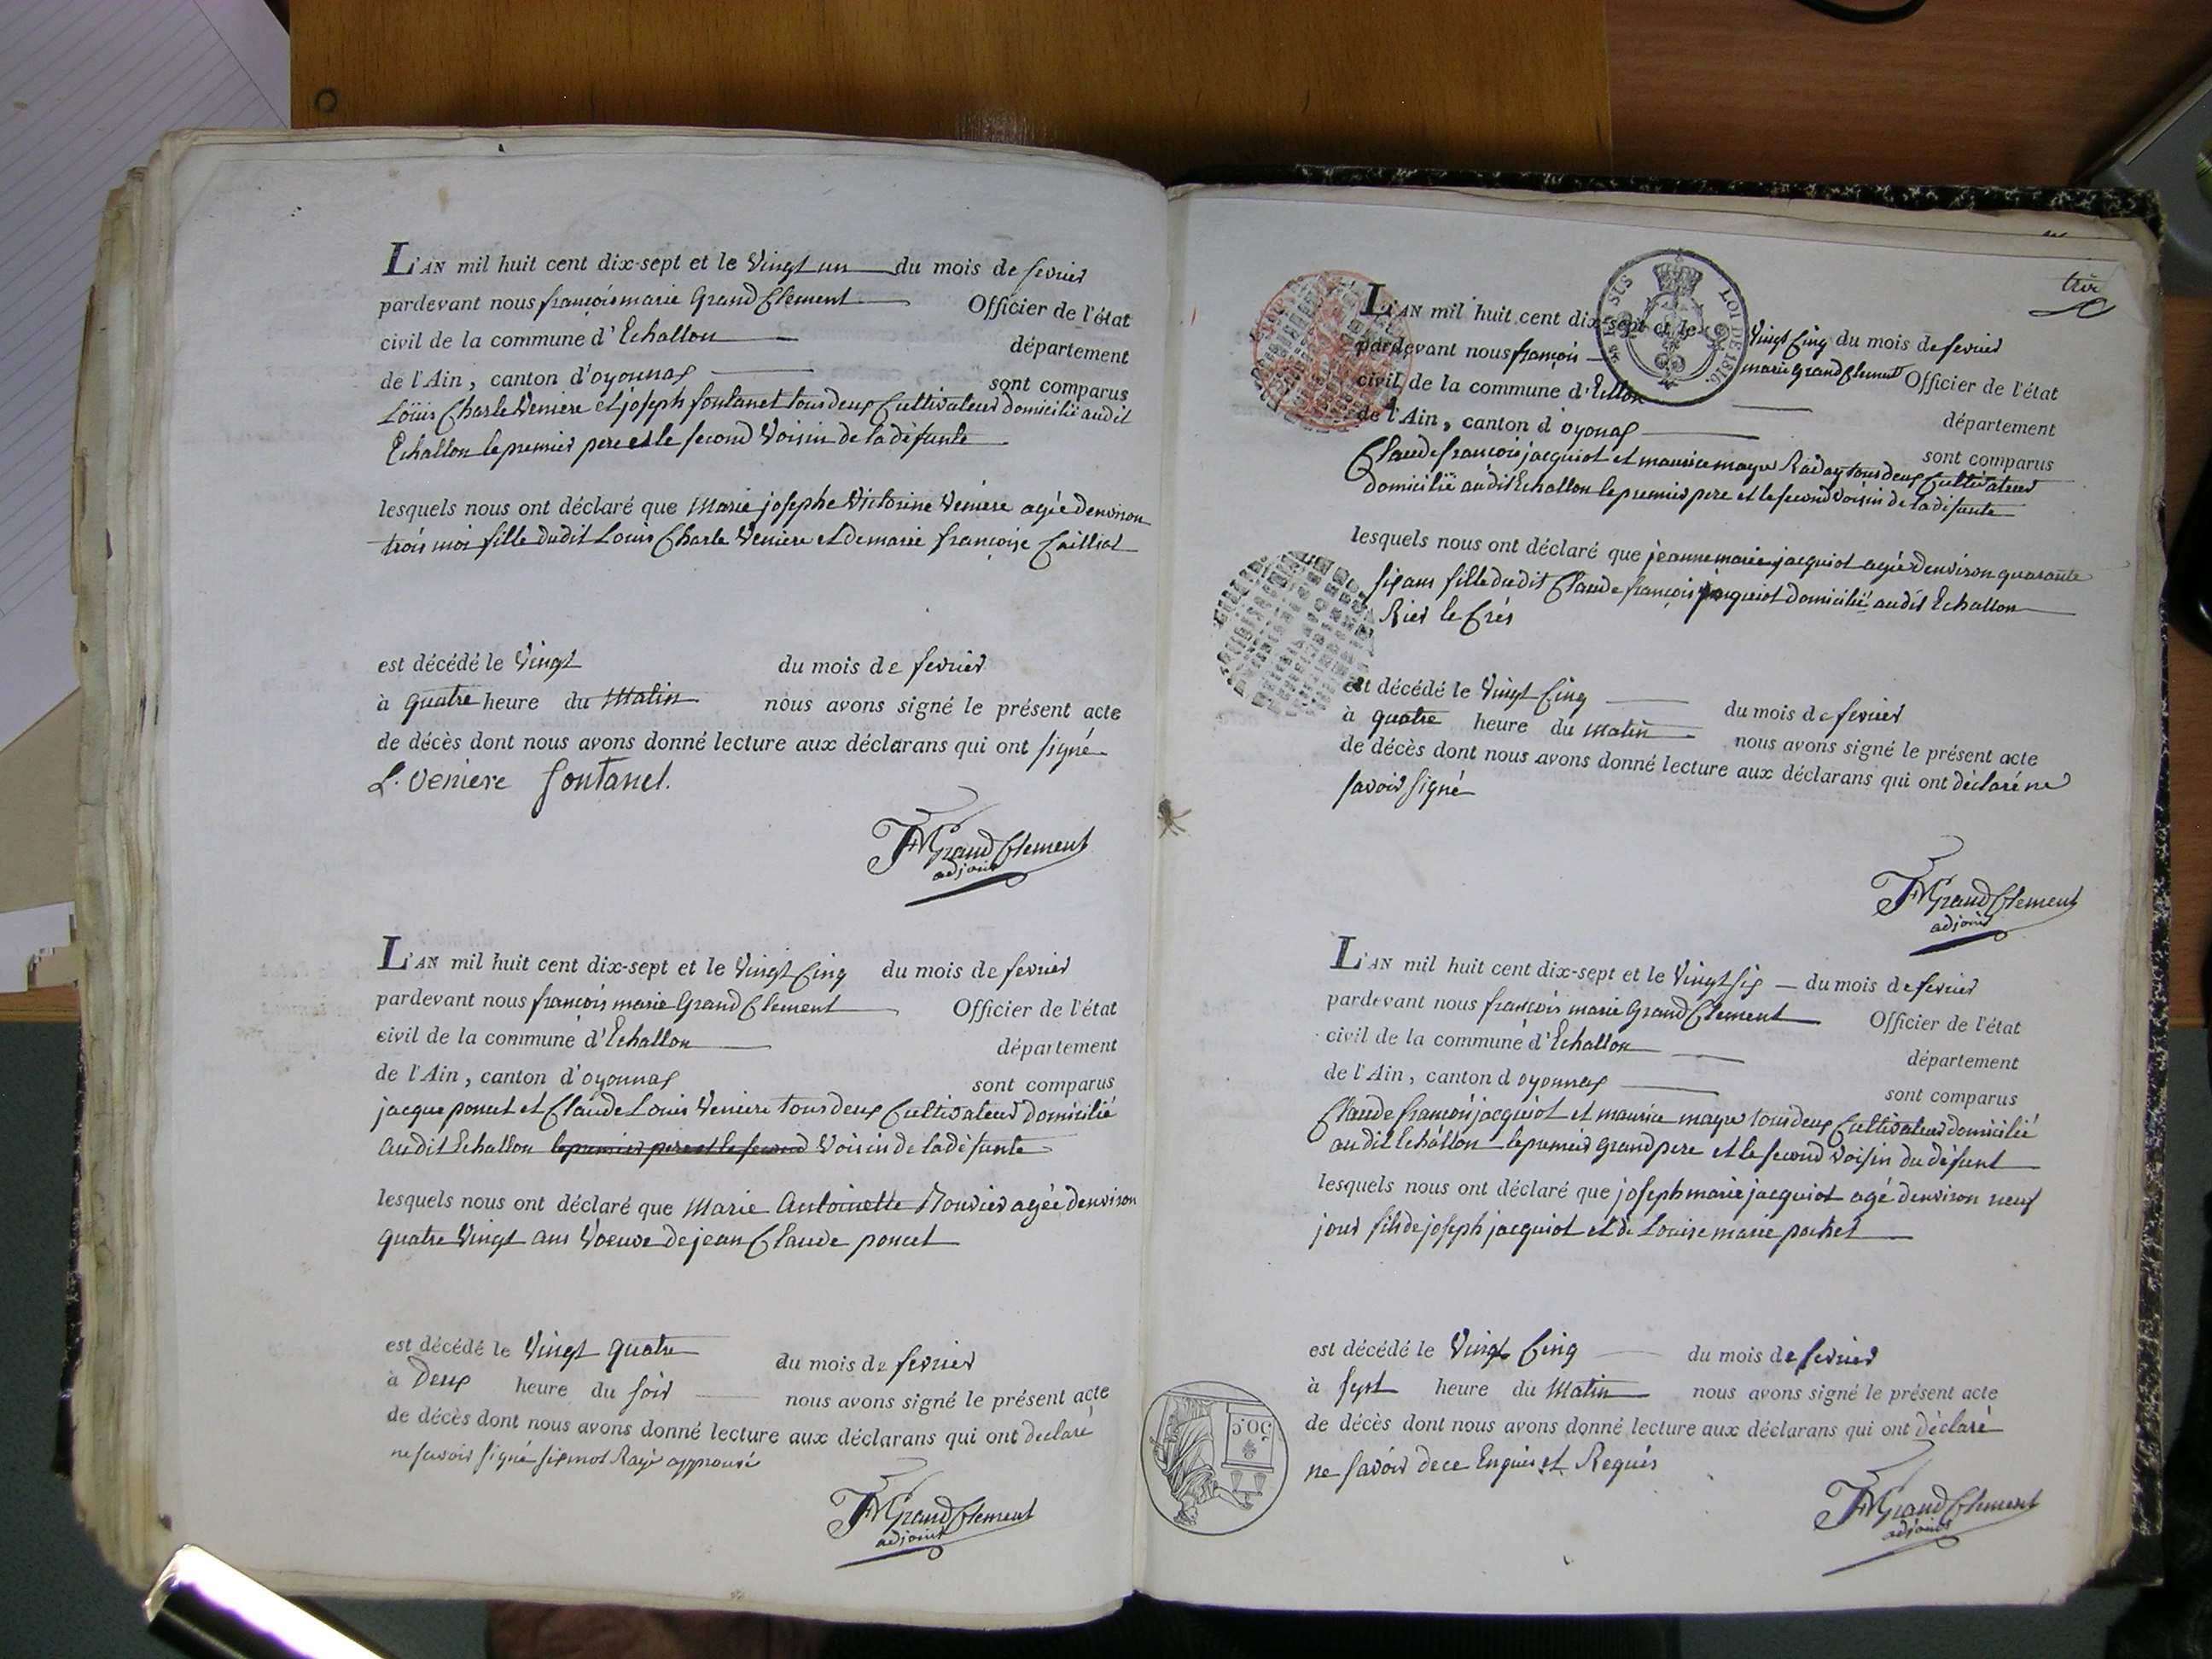 L'AN mil huit cent dix-sept et le Vingt un du mois de fevrier
pardevant nous françois marie Grand Clement Officier de l'état
civil de la commune d'Echallon département
de l'Ain, canton d'oyonnax sont comparus
Loüis Charle Veniere et joseph fontanet tous deux Cultivateur domicilié audit
Echallon le premier pere et le second Voisin de la défunte
lesquels nous ont déclaré que Marie josephe Victorine Veniere agée denviron
trois moi fille dudit Louis Charle Veniere et De marie françoise Cailliat
est décédé le Vingt du mois de fevrier
à quatre heure du Matin nous avons signé le présent acte
de décès dont nous avons donné lecture aux déclarans qui ont signé
L. Veniere fontanet.
FM Grand Clement
adjoint
L'AN mil huit cent dix-sept et le Vingt Cinq du mois de fevrier
pardevant nous françois marie Grand Clement Officier de l'état
civil de la commune d'Echallon département
de l'Ain, canton d'oyonnax sont comparus
jacque poncet et Claude Louis Veniere tous deux Cultivateur domicilié
audit Echallon le premier pere et le second Voisin de la défunte
lesquels nous ont déclaré que Marie Antoinette agée denviron
quatre Vingt ans Voeuve de jean Claude poncet
est décédé le Vingt quatre du mois de fevrier
à Deux heure du soir nous avons signé le présent acte
de décès dont nous avons donné lecture aux déclarans qui ont declaré
ne savoir signé six mot Rayé approuvé
FM Grand Clement
adjoint
troi
SUS
LOI DE 1816.
L'AN mil huit cent dix-sept et le Vingt Cinq du mois de fevrier
pardevant nous françois marie Grand Clement Officier de l'état
civil de la commune d' département
de l'Ain, canton d'oyonax sont comparus
Claude françois jacquiot et maurice mayer tous deux Cultivateur
domicilié audit Echallon le premier pere et le second voisin de la défunte
lesquels nous ont déclaré que jeanne marie jacquiot agée denviron quarante
six ans fille dudit Claude françois jacquiot domicilié audit Echallon
Rier le Crés
est décédé le Vingt Cinq du mois de fevrier
à quatre heure du matin nous avons signé le présent acte
de décès dont nous avons donné lecture aux déclarans qui ont déclaré ne
savoir signé
FM Grand Clement
adjoint
L'AN mil huit cent dix-sept et le Vingt six du mois de fevrier
pardevant nous françois marie Grand Clement Officier de l'état
civil de la commune d'Echallon département
de l'Ain, canton d oyonnax sont comparus
Claude françois jacquiot et maurice mayer tous deux Cultivateur domicilié
audit Echallon le premier grand pere et le second voisin du défunt
lesquels nous ont déclaré que joseph marie jacquiot agé denviron neuf
jour fils de joseph jacquiot et de Louise marie pochet
est décédé le Vingt Cinq du mois de fevrier
à sept heure du Matin nous avons signé le présent acte
de décès dont nous avons donné lecture aux déclarans qui ont déclaré
ne savoir de ce Enquis et Requis
FM Grand Clement
adjoint
50 C